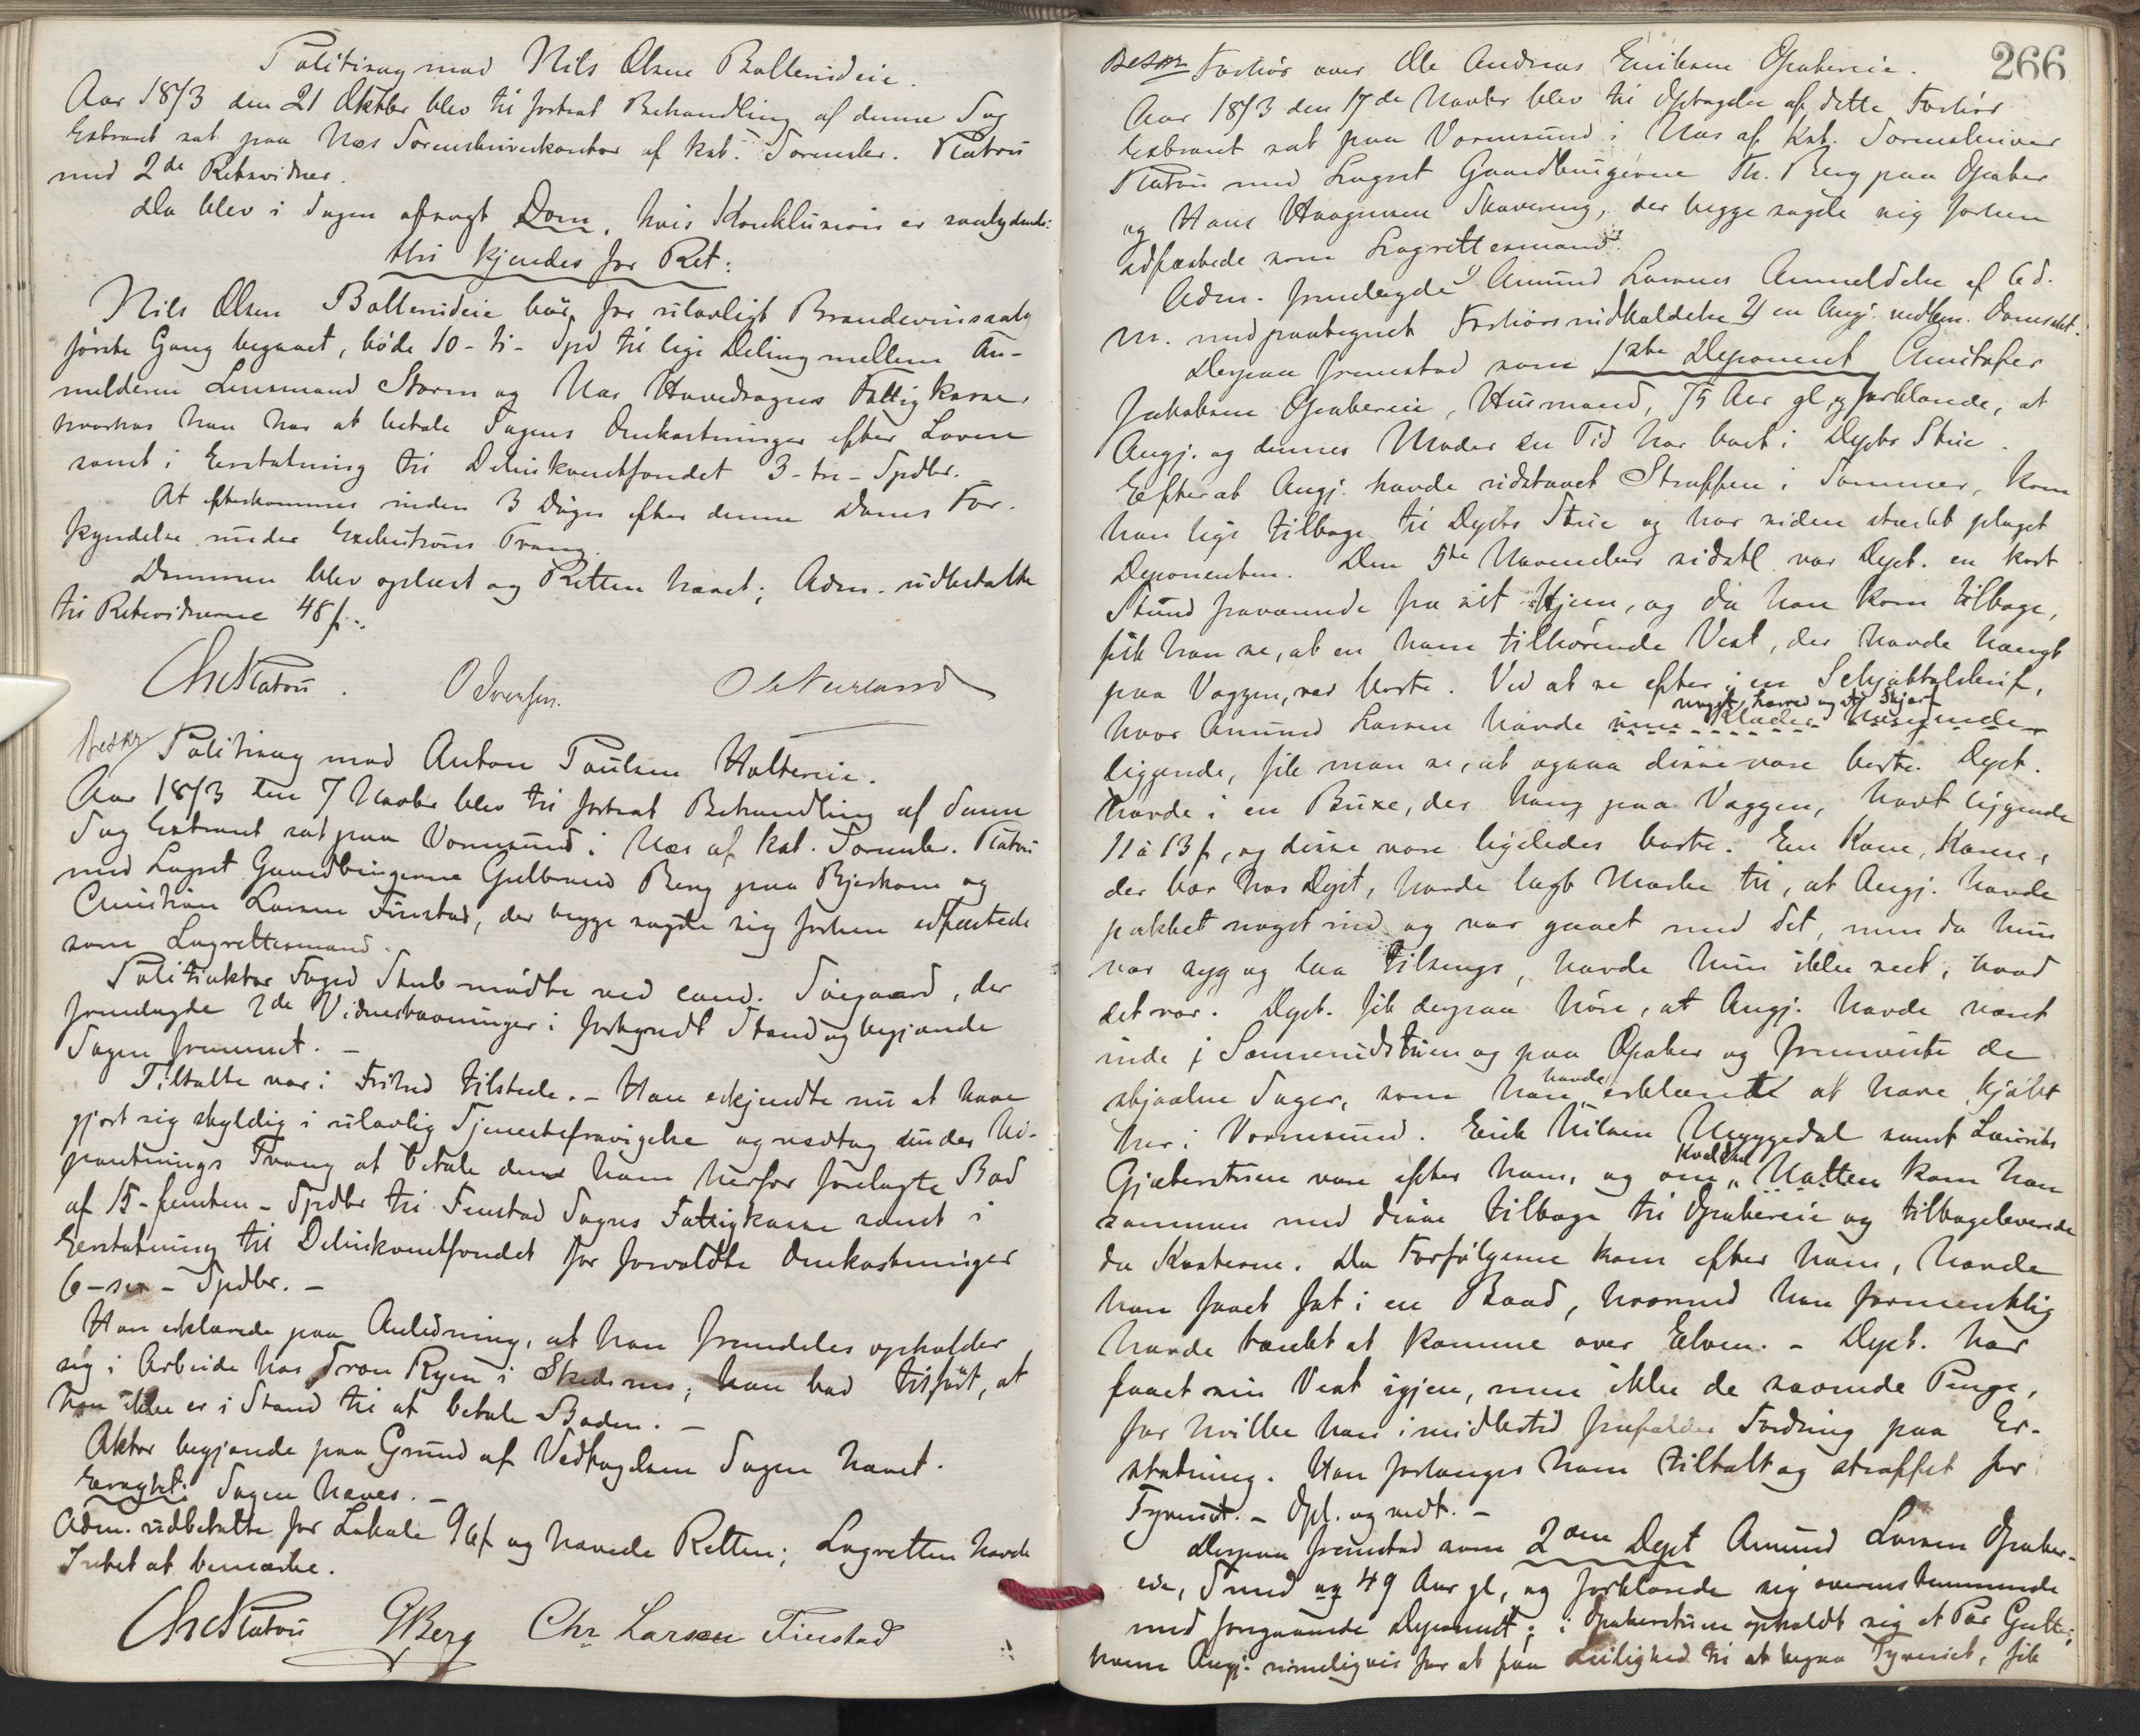 Politisag mod Nils Olsen Ballerudeie.
Aar 1873 den 21 Oktbr blev til fortsat Behandling af denne Sag
Extraret sat paa Næs Sorenskriverkontor af kst. Sorenskr. Platou
med 2de Retsvidner.
Da blev i Sagen afsagt Dom, hvis Konklusion er saalydende:
Thi kjendes for Ret:
Nils Olsen Ballerudeie bør, for ulovligt Brændevinssalg
første Gang begaaet, bøde 10 - ti - Spd til lige Deling mellem An-
melderen Lensmand Storm og Næs Hovedsogns Fattigkasse,
hvorhos han har at betale Sagens Omkostninger efter Loven
samt i Erstatning til Delinkventfondet 3 - tre - Spdlr.
At efterkommes inden 3 Dage efter denne Doms For-
kyndelse under Exekutions Tvang.
Dommen blev oplæst og Retten hævet; Adm. udbetalte
til Retsvidnerne 48 f.
Chr Platou. O Iversen.
Beskr Politisag mod Anton Paulsen Haltereie.
Aar 1873 den 7 Novbr blev til fortsat Behandling af denne
Sag Extraret sat paa Vormsund i Næs af kst. Sorenskr. Platou
med Lagret Gaardbrugerne Gulbrand Berg paa Bjerkom og
Christian Larsen Finstad, der begge sagde sig forhen edfæstede
som Lagrettesmænd.
Politiaktor Foged Skub mødte ved cand. Siegaard, der
fremlagde 2de Vidnestævninger i forkyndt Stand og begjærede
Sagen fremmet. -
Tiltalte var i Frihed tilstede. - Han erkjendte nu at have
gjort sig skyldig i ulovlig Tjenestefravigelse og vedtog under Ud-
pantnings Tvang at betale den ham herfor forelagte Bod
af 15 - femten - Spdlr til Fenstad Sogns Fattigkasse samt i
Erstatning til Delinkventfondet for forvoldte Omkostninger
6 - sex - Spdlr. -
Han erklærede paa Anledning, at han fremdeles opholder
sig i Arbeide hos Iron Ryen i Skedsmo; han bad tilført, at
han ikke er i Stand til at betale Boden. -
Aktor begjærede paa Grund af Vedtagelsen Sagen hævet.
Eragtet: Sagen hæves. -
Adm. udbetalte for Lokale 96 f og hævede Retten; Lagretten havde
Intet at bemærke.
Chr Platou GBerg Chr Larsen Finstad
266
Beskr Forhør over Ole Andreas Eriksen Opakereie.
Aar 1873 den 17de Novbr blev til Optagelse af dette Forhør
Extraret sat paa Vormsund i Næs af kst. Sorenskriver
Platou med Lagret Gaardbrugerne Th. Berg paa Opaker
og Hans Haagensen Skavering, der begge sagde sig forhen
edfæstede som Lagrettesmænd.
Adm. fremlagde 1) Amund Larsens Anmeldelse af 6 d.
M. med paategnet Forhørsindkaldelse 2) en Angj. vedkom. Domsakt.
Derpaa fremstod som 1ste Deponent Christofer
Jakobsen Opakereie, Husmand, 75 Aar gl, og forklarede, at
Angj. og dennes Moder en Tid har boet i Depts Stue.
Efterat Angj. havde udstaaet Straffen i Sommer, kom
han lige tilbage til Depts Stue og har siden stærkt plaget
Deponenten. Den 5te November sidstl. var Dept. en kort
Stund fraværende fra sit Hjem, og da han kom tilbage,
fik han se, at en ham tilhørende Vest, der havde hængt
paa Væggen, var borte. Ved at se efter i en
noget af Skjerf
hvor Amund Larsen havde sine Klæder
liggende, fik man se, at ogsaa disse vare borte. Dept.
havde i en Buxe, der hang paa Væggen, havt liggende
11 à 13 f, og disse vare ligeledes borte. En Kone, Karen,
der bor hos Dept, havde lagt Mærke til, at Angj. havde
pakket noget ind og var gaaet med det, men da hun
var syg og laa tilsengs, havde hun ikke seet, hvad
det var. Dept. fik derpaa høre, at Angj. havde været
inde i Sannerudstuen og paa Opaker og fremviste de
stjaalne Sager, som han havde erklæret at have kjøbt
her i Vormsund. Erik Nilsen samt Lauritz
Gjæberstuen vare efter ham, og om Kvelden Natten kom han
sammen med disse tilbage til Opakereie og tilbageleverede
da Kosterne. Da Forfølgerne kom efter ham, havde
han faaet fat i en Baad, hvormed han formentlig
havde tænkt at komme over Elven. - Dept. har
faaet sin Vest igjen, men ikke de savnede Penge,
for hvilke han imidlertid frafalder Fordring paa Er-
statning. Han forlanger ham tiltalt og straffet for
Tyveriet. - Opl. og vedt. -
Derpaa fremstod som 2den Dept Amund Larsen Opaker-
eie, Smed og 49 Aar gl, og forklarede sig overensstemmende
med foregaaende Deponent; i Opakerstuen opholdt sig et Par Gutter,
hvem Angj. rimeligvis for at faa Leilighed til at begaa Tyveriet, fik